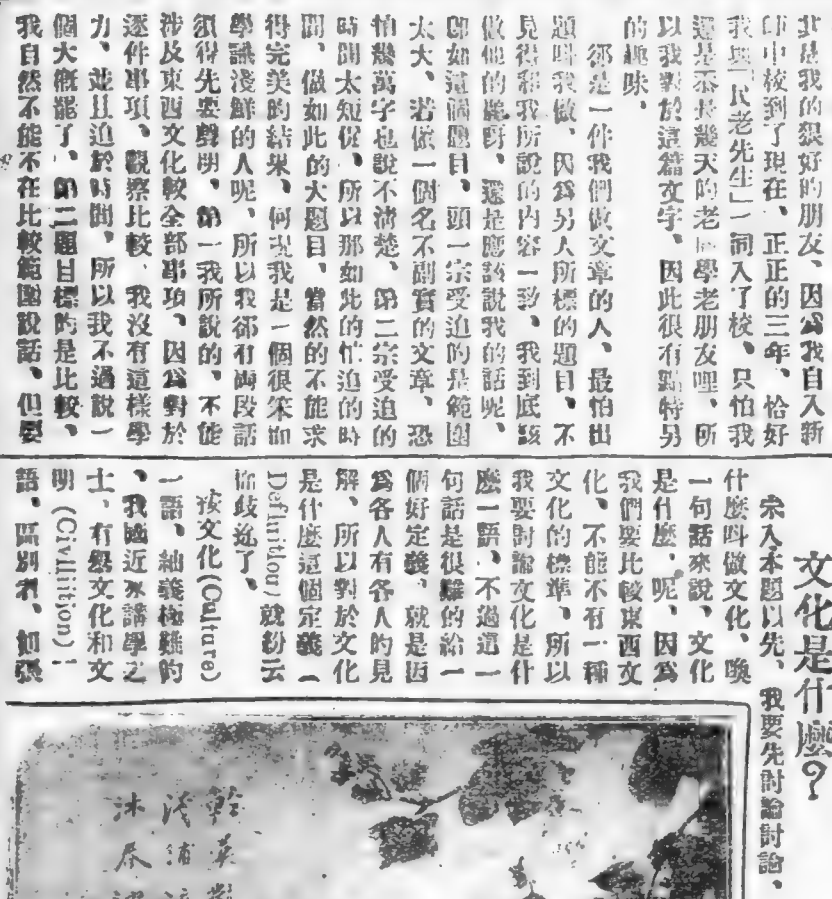 此是我的很好的朋友、因爲我自入新
中校到了現在、正正的三年、恰好
我與「民老先生」一同入了校、只怕我
還是不是幾天的老同學老朋友哩、所
以我對於這篇文字、因此很有點特另
的趣味、
都是一件我們做文章的人、最怕出
題叫我做、因爲另人所標的題目、不
見得和我所說的内容一致、我到底該
做他的題呀、還是應該說我的話呢、
卽如這個題目、頭一宗受迫的是範圍
太大、若做一個名不副實的文章、恐
怕幾萬字也說不淸楚、第二宗受迫的
時間太短促、所以那如此的忙迫的時
間、做如此的大題目、當然的不能求
得完美的結果、何况我是一個很笨而
學識淺鮮的人呢、所以我都有兩段話
須得先要聲明、第一我所說的、不能
涉及東西文化較全部事項、因爲對於
逐件事項、觀察比較、我沒有這樣學
力、並且迫於時間、所以我不過說一
個大槪罷了、第二題目標的是比較、
我自然不能不在比較範圍說話、但要
文化是什麽?
未入本題以先、我要先討論討論、
什麽叫做文化、喚
一句話來說、文化
是什麽、呢、因爲
我們要比較東西文
化、不能不有一種
文化的標準、所以
我要討論文化是什
麽一語、不過這一
句話是很難的給一
個好定義、就是因
爲各人有各人的見
解、所以對於文化
是什麽這個定義(
Definition)就紛云
歧訛了、
按文化(Culture)
一語、紬義極難的
、我國近來講學之
士、有壆文化和文
明(Civiliition)!
語、區別者、如張